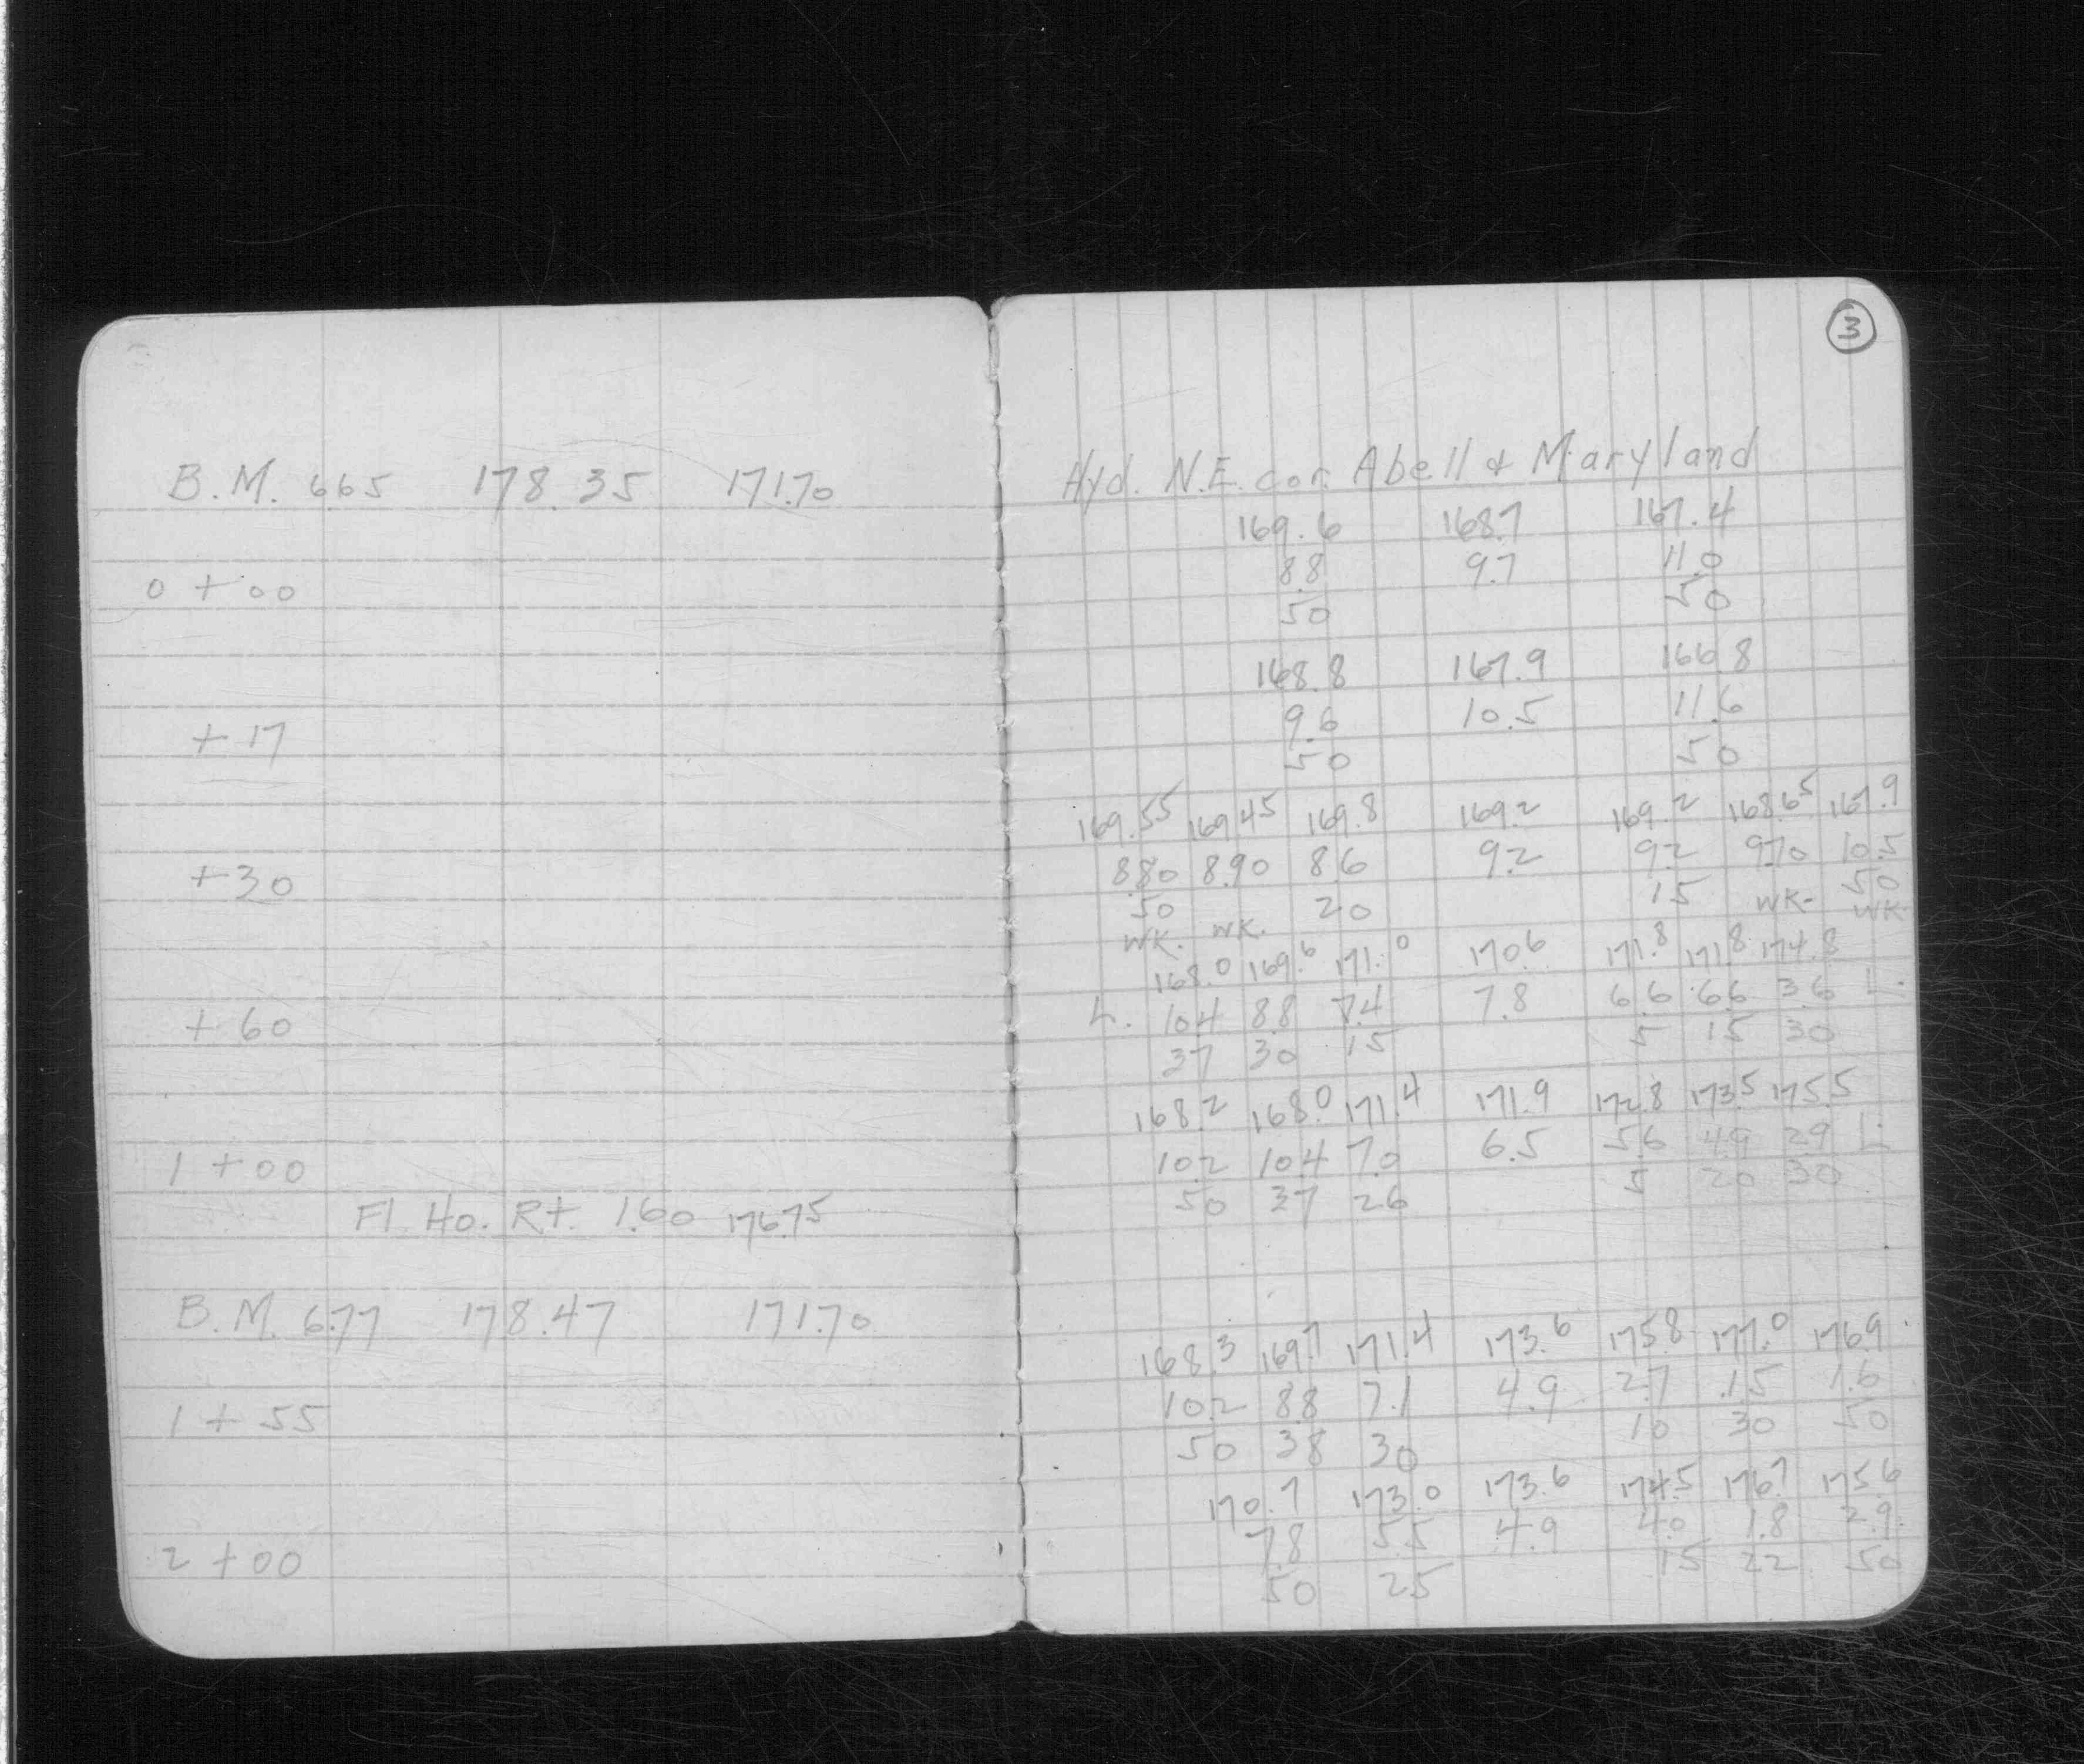 B.M. 6.65 178.35 171.70
0 + 00
+ 17
+ 30
+ 60
1 + 00
Fl. Ho. Rt. 1.60 176.75
B.M. 6.77 178.47 171.70
1 + 55
2 + 00
3
Hyd. N.E. cor. Abell & Maryland
169.6 168.7 167.4
8.8 9.7 11.0
50 50
168.8 167.9 166.8
9.6 10.5 11.6
50 50
169.55 169.45 169.8 169.2 169.2 168.65 167.9
8.80 8.90 8.6 9.2 9.2 9.70 10.5
50 20 15 50
WK. WK. WK- WK
168.0 169.6 171.0 170.6 171.8 171.8 174.8
L. 10.4 8.8 7.4 7.8 6.6 6.6 3.6 L.
37 30 15 5 15 30
168.2 168.0 171.4 171.9 172.8 173.5 175.5
10.2 10.4 7.0 6.5 5.6 4.9 2.9 L.
50 37 26 5 20 30
168.3 169.7 171.4 173.6 175.8 177.0 176.9
10.2 8.8 7.1 4.9 2.7 1.5 1.6
50 38 30 10 30 50
170.7 173.0 173.6 174.5 176.7 175.6
7.8 5.5 4.9 4.0 1.8 2.9
50 25 15 22 50